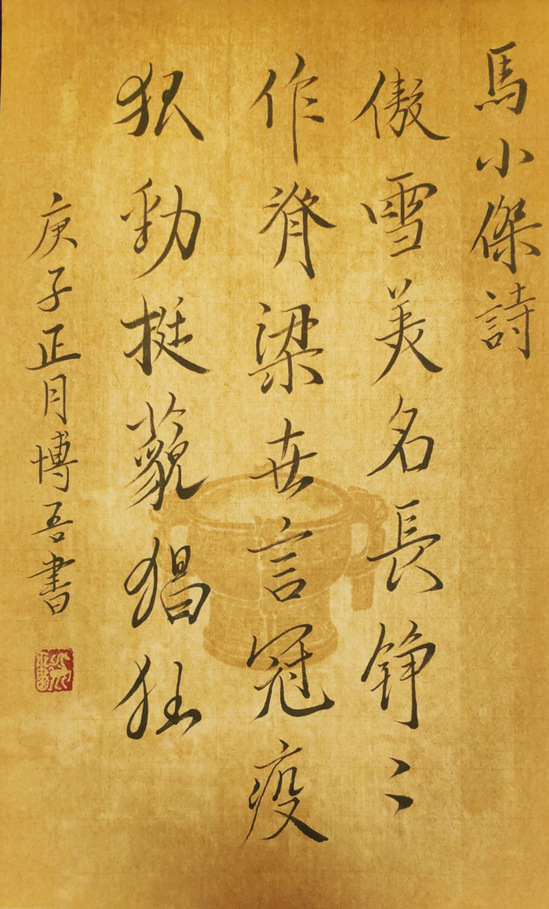 馬小傑詩
傲雪美名長錚々
作脊梁世言冠疫
狠勁挺藐猖狂
庚子正月博吾書